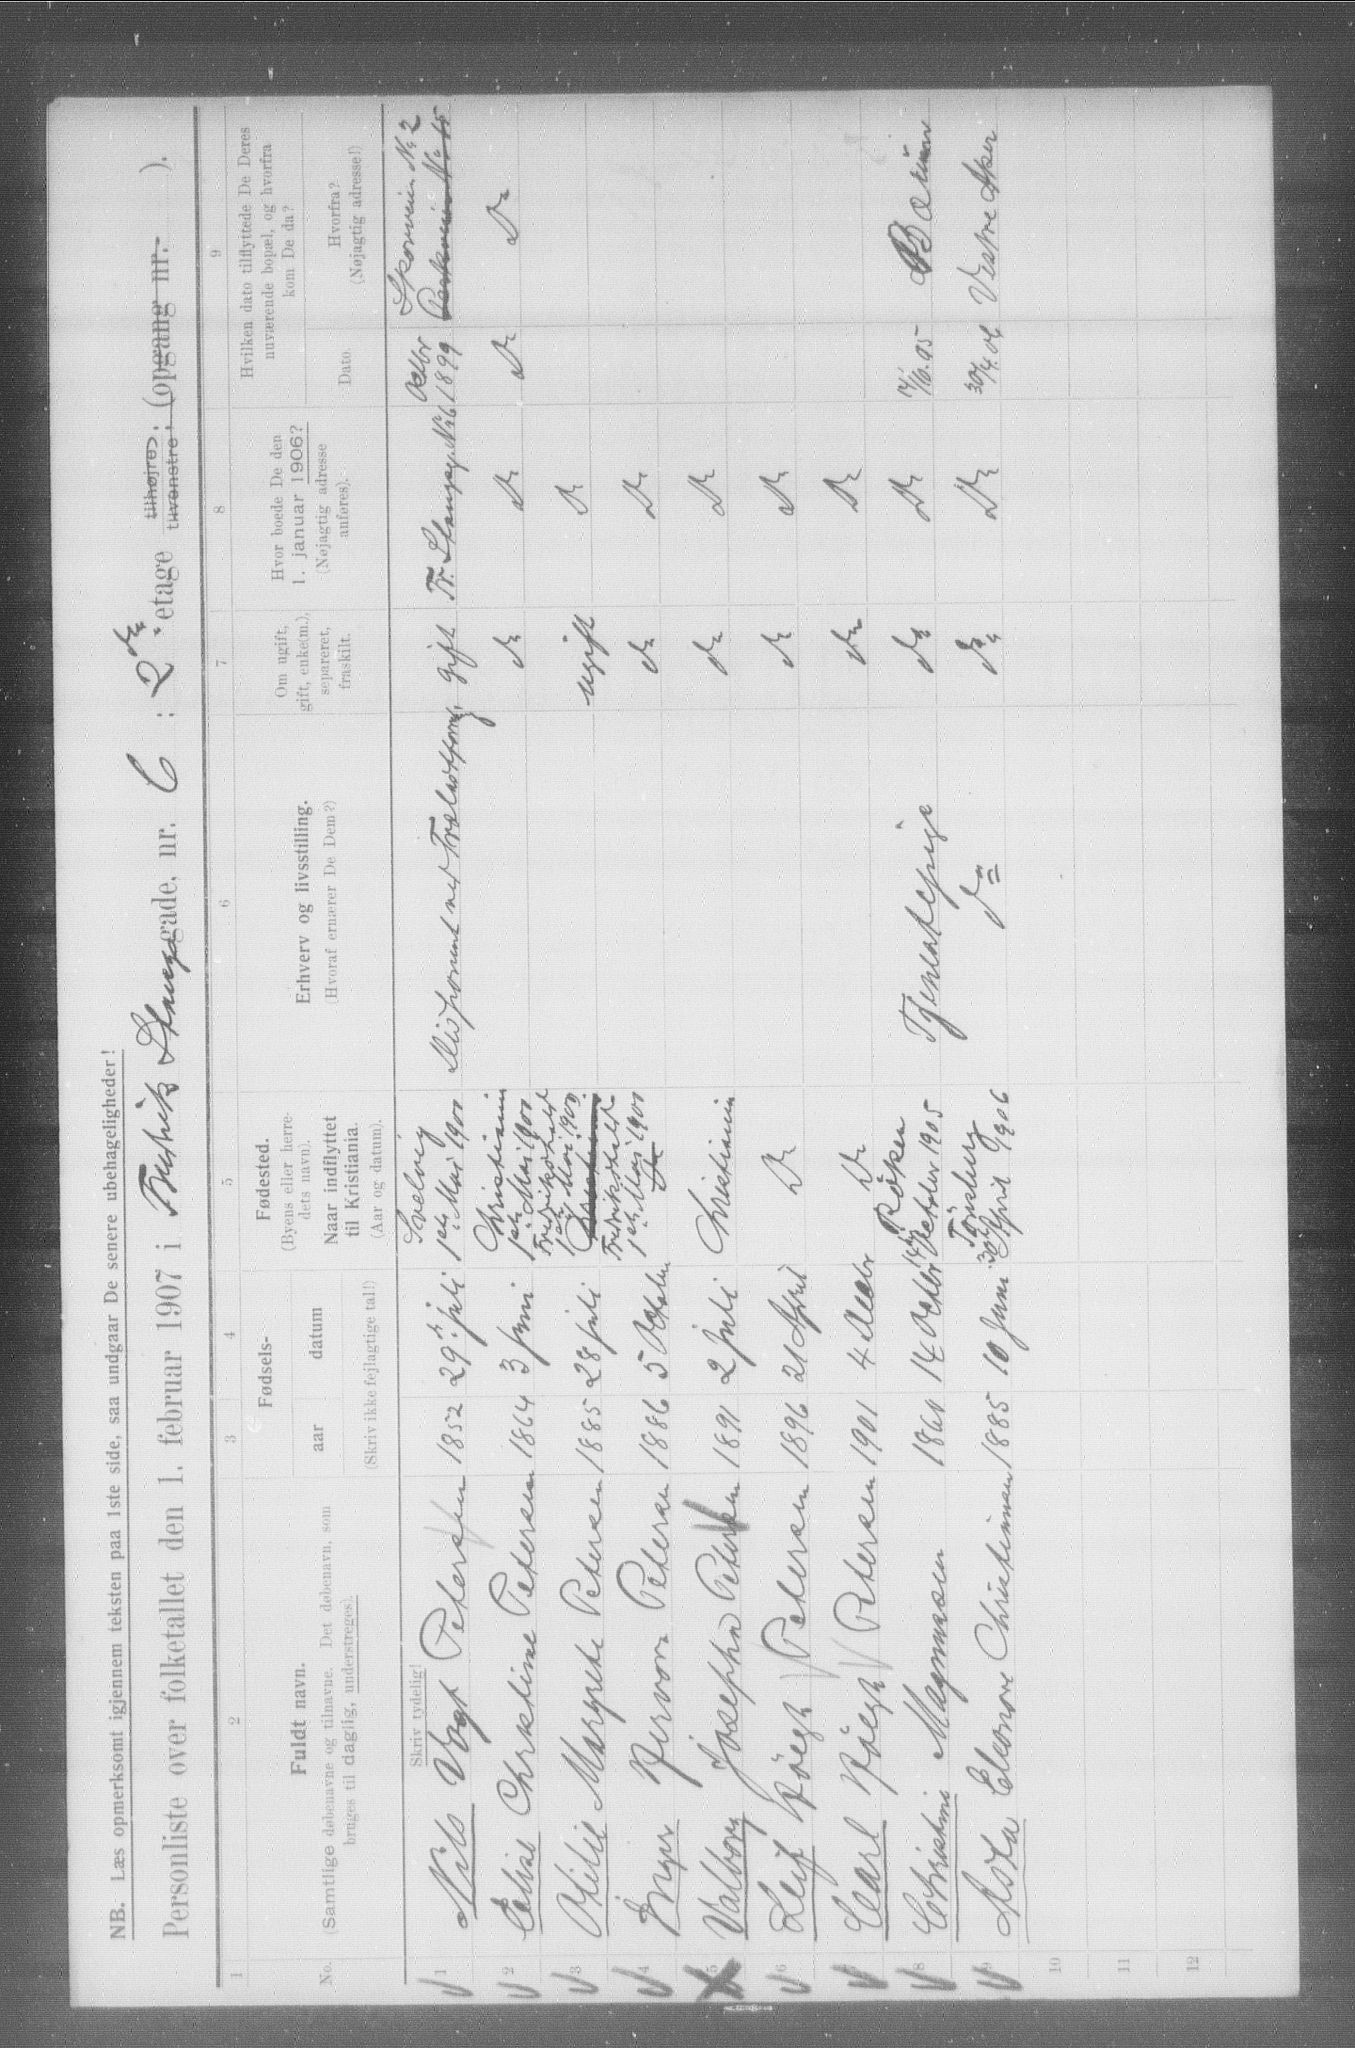 NB. Læs opmerksomt igjennem teksten paa 1ste side, saa undgaar De senere ubehageligheder!
Personliste over folketallet den 1. februar 1907 i Fredrik Stangs gade, nr. 6 : 2den etage tilhøjre, tilvenstre, (opgang nr. ).
1 2 3 4 5 6 7 8 9
No.
Fuldt navn.
(Samtlige døbenavne og tilnavne. Det døbenavn, som
bruges til daglig, understreges).
Fødsels-
aar datum
(Skriv ikke fejlagtige tal!)
Fødested.
(Byens eller herre-
dets navn).
Naar indflyttet
til Kristiania.
(Aar og datum).
Erhverv og livsstilling.
(Hvoraf ernærer De Dem?)
Om ugift,
gift, enke(m.),
separeret,
fraskilt.
Hvor boede De den
1. januar 1906?
(Nøjagtig adresse
anføres).
Hvilken dato tilflyttede De Deres
nuværende bopæl, og hvorfra
kom De da?
Dato.
Hvorfra?
(Nøjagtig adresse!)
Skriv tydelig!
1 Nils Vogt Petersen 1852 29de juli Svelvig 1ste Mai 1900 Disponent ved gift Fr. Stangsg. No 6 Octbr 1899 No 2
2 Christine Petersen 1864 3 juni Christiania 1ste Mai 1900 do do do do
3 Otilie Margrethe Petersen 1885 28 juli Fredrikshald 1ste Mai 1900 Christiania ugift do
4 Inger Petersen 1886 5 October Fredrikshald 1ste Mai 1900 do do do
5 Valborg Josephine Petersen 1891 2 juli Christiania do do
6 Leif Petersen 1896 21 April do do do
7 Carl Petersen 1901 4 Decbr do do do
8 Christine Magnussen 1860 14 Octbr Røken 14 October 1905 Tjenestepige do do 17/10.05 Bærum
9 Asta Eleonore Christiansen 1885 10 Juni Tønsberg 30 April 1906 do do do 30/4.06 Vestre Aker
10
11
12